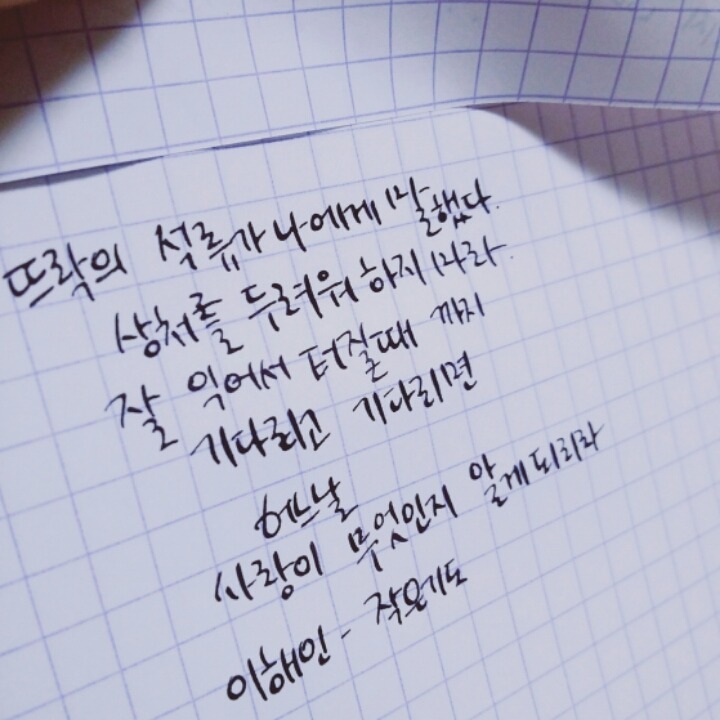 뜨락의 석류가 나에게 말했다.
상처를 두려워 하지 마라.
잘 익어서 터질때 까지
기다리고 기다리면
어느날
사랑이 무엇인지 알게되리라
이해인 - 작은기도